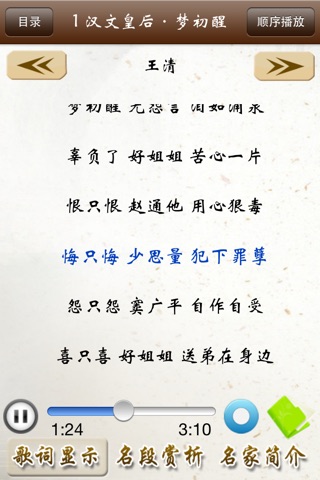 目录 1汉文皇后·梦初醒 顺序播放
王清
梦初醒 无怨言 泪如涌泉
辜负了 好姐姐 苦心一片
恨只恨 赵通他 用心狠毒
悔只悔 少思量 犯下罪孽
怨只怨 窦广平 自作自受
喜只喜 好姐姐 送弟在身边
1:24 3:10
歌词显示 名段赏析 名家简介